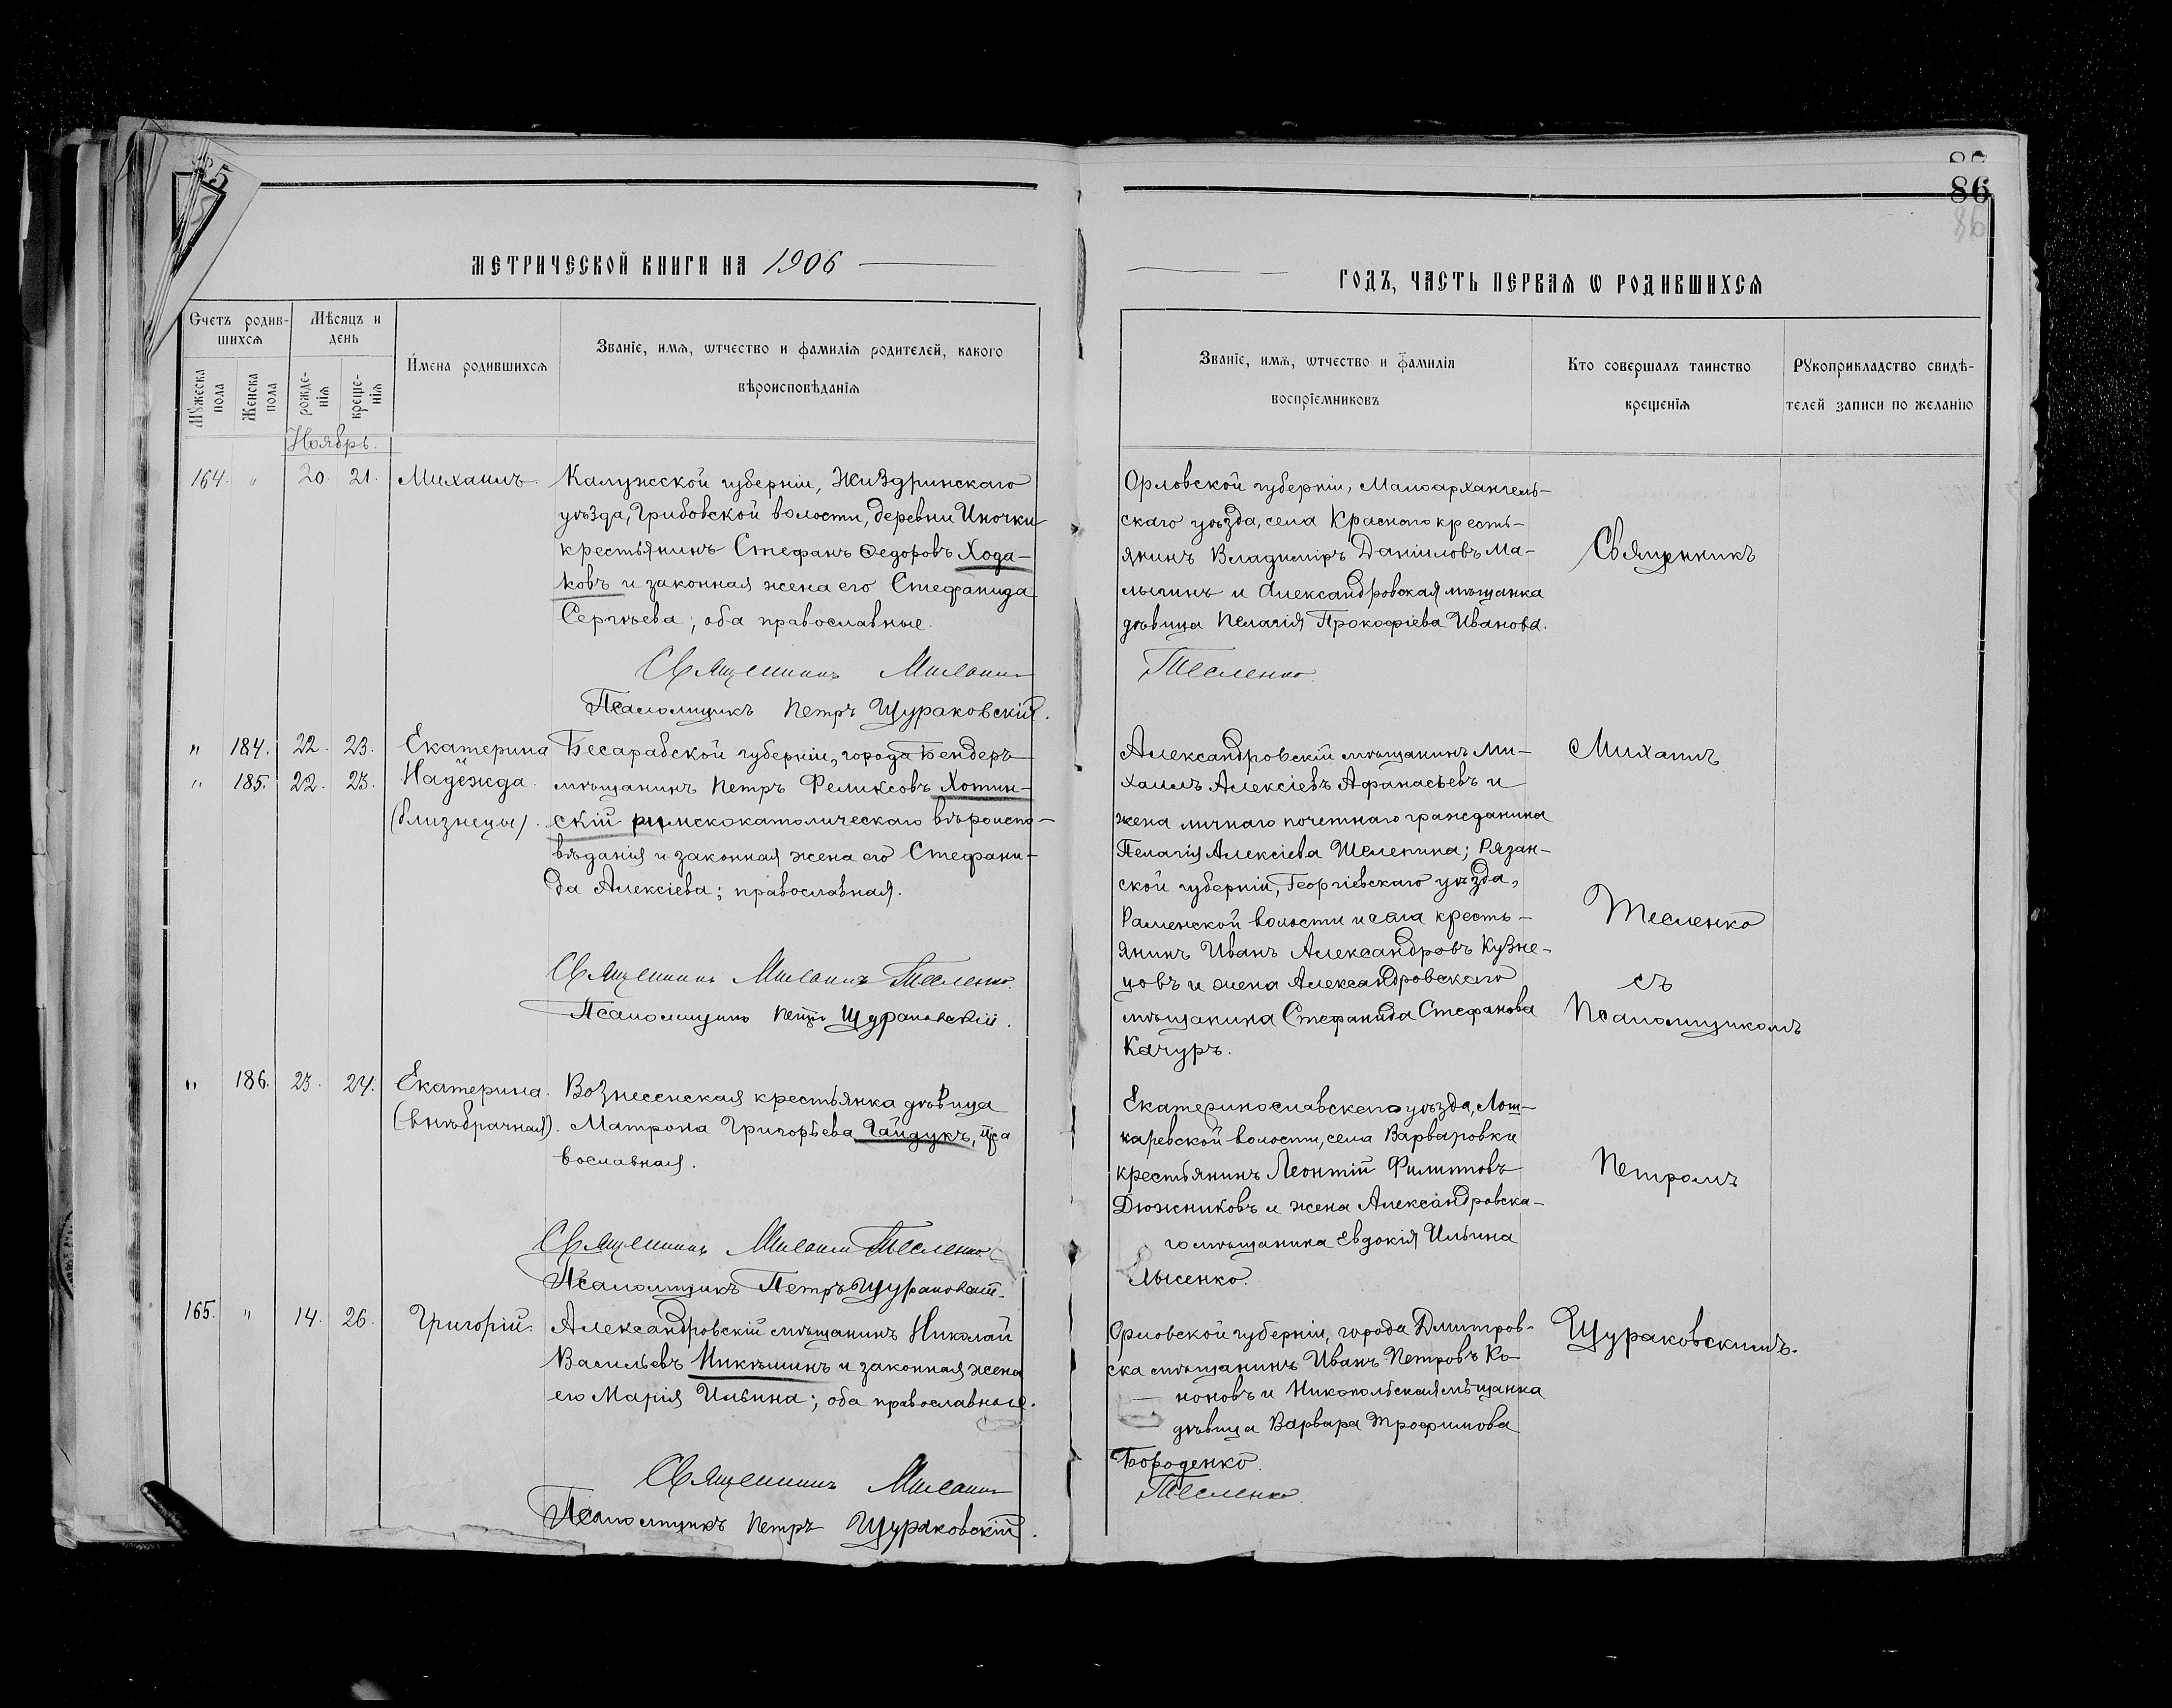 85
86
86
МЕТРИЧЕСКОЙ КНИГИ НА 1906
ГОДЪ, ЧАСТЬ ПЕРВАѦ Ѡ РОДИВШИХСѦ
Счетъ родив-
шихсѧ
Мѣсяцъ и
день
Мꙋжеска пола
Женска пола
рожде-
нія
креще-
нія
Имена родившихсѧ
Званіе, имѧ, ѡтчество и фамиліѧ родителей, какого
вѣроисповѣданіѧ
Званіе, имѧ, ѡтчество и фамиліѧ
воспріемниковъ
Кто совершалъ таинство
крещеніѧ
Рꙋкоприкладство свидѣ-
телей записи по желанію
Ноябрь.
164. " 20. 21. Михаилъ.
Калужской губерніи, Жиздринскаго
уѣзда, Грибовской волости, деревни Иночки
крестьянинъ Стефанъ Ѳедоровъ Хода-
ковъ и законная жена его Стефанида
Сергѣева; оба православные.
Священникъ Михаилъ
Псаломщикъ Петръ Щураковскій.
Орловской губерніи, Малоархангель-
скаго уѣзда, села Красного кресть-
янинъ Владиміръ Даніиловъ Ма-
лыгинъ и Александровская мѣщанка
дѣвица Пелагія Прокофіева Иванова.
Тесленко
" 184. 22. 23. Екатерина
" 185. 22. 23. Надежда.
(близнецы).
Бесарабской губерніи, города Бендеръ
мѣщанинъ Петръ Феликсовъ Хотин-
скій римскокатолическаго вѣроиспо-
вѣданія и законная жена его Стефани-
да Алексіева; православная.
Священникъ Михаилъ Тесленко.
Псаломщикъ Петръ Щураковскій.
Александровскій мѣщанинъ Ми-
хаилъ Алексіевъ Афанасьевъ и
жена личнаго почетнаго гражданина
Пелагія Алексіева Шелепина; Рязан-
ской губерніи, Георгіевскаго уѣзда,
Раменской волости и села кресть-
янинъ Иванъ Александровъ Кузне-
цовъ и жена Александровскаго
мѣщанина Стефанида Стефанова
Качуръ.
" 186. 23. 24. Екатерина.
(внѣбрачная).
Вознесенская крестьянка дѣвица
Матрона Григорьева Гайдукъ, пра
вославная.
Священникъ Михаилъ Тесленко
Псаломщикъ Петръ Щураковскій.
Екатеринославскаго уѣзда, Лош-
каревской волости, села Варваровки
крестьянинъ Леонтій Филиповъ
Дюжниковъ и жена Александровска-
го мѣщанина Евдокія Ильина
Лысенко.
165. " 14. 26. Григорій.
Александровскій мѣщанинъ Николай
Васильевъ Никѣшинъ и законная жена
его Марія Ильина; оба православные.
Священникъ Михаилъ
Псаломщикъ Петръ Щураковскій.
Орловской губерніи, города Дмитров-
ска мѣщанинъ Иванъ Петровъ Ко-
ноновъ и Никопольская мѣщанка
дѣвица Варвара Трофимова
Бороденко.
Тесленко.
Священникъ
Михаилъ
Тесленко
съ
Псаломщикомъ
Петромъ
Щураковскимъ.